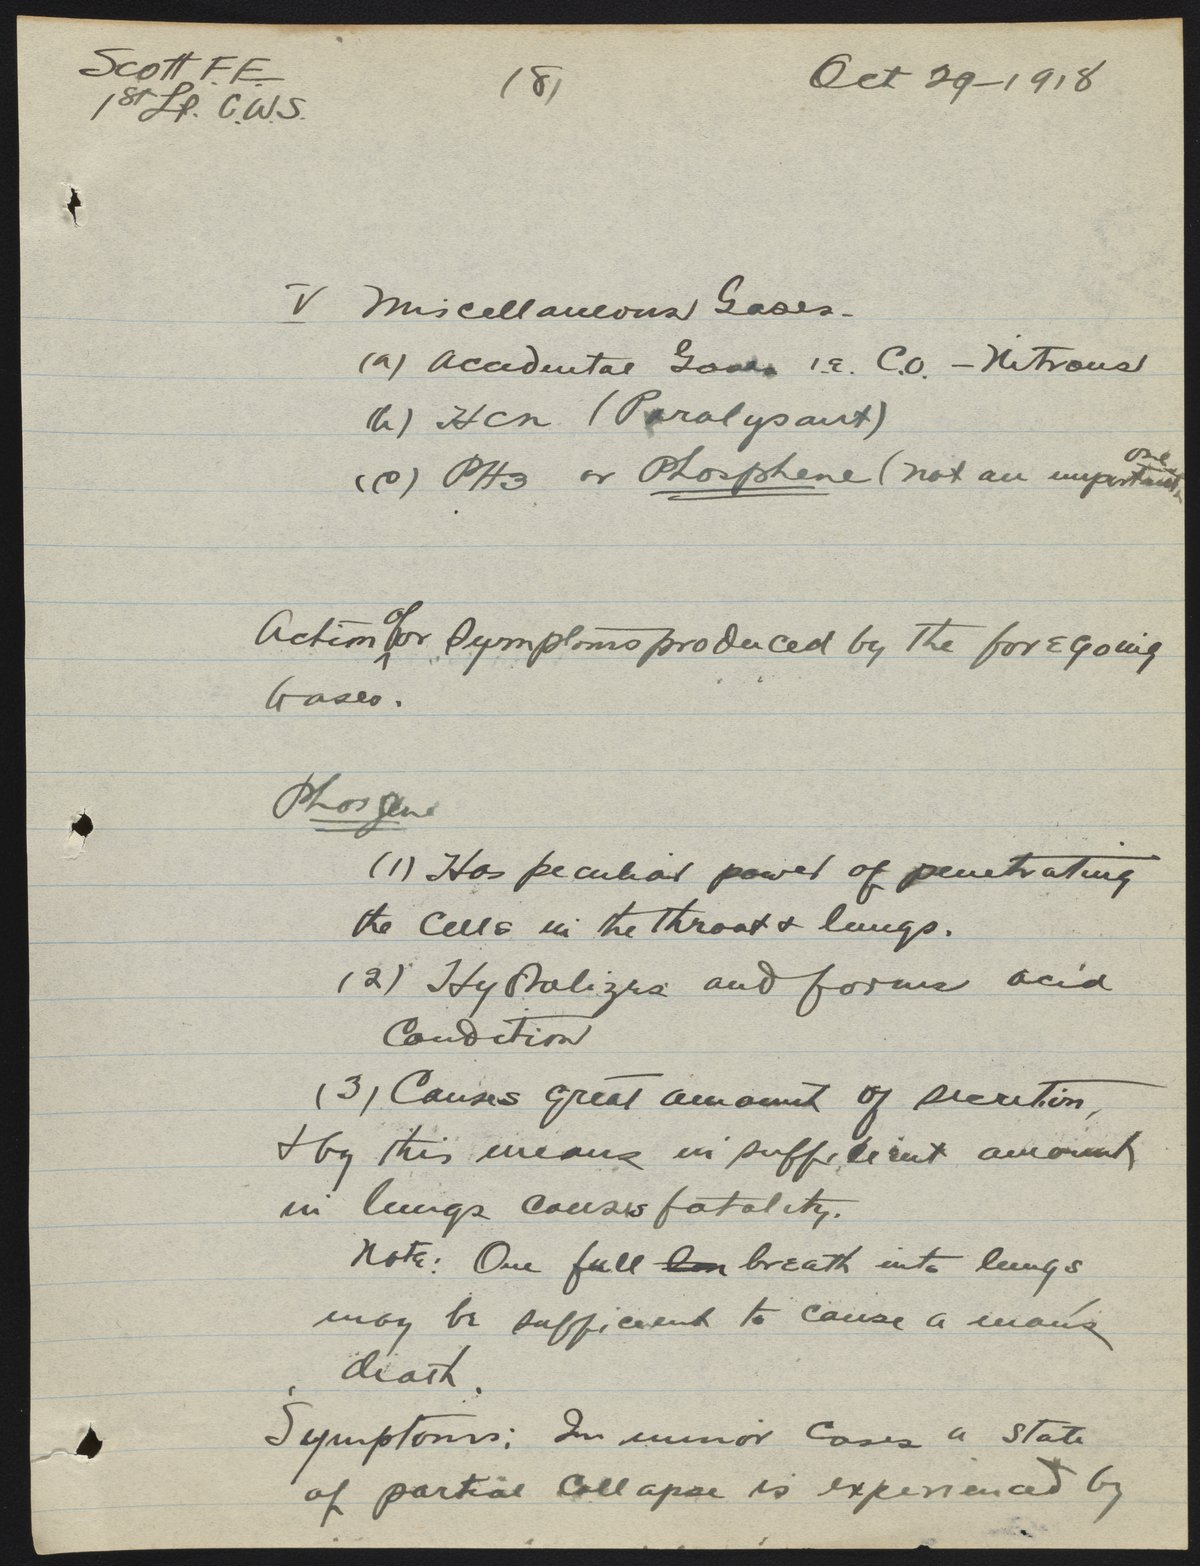 Scott F.F.
1st Lt. C.W.S.
(8)
Oct 29-1918
V Miscellaneous Gases-
(a) Accidental Gases i.e. C.O. - Nitrous
(b) HCN (Paralysant)
(c) PH3 or Phosphene (not an important one
Action of or Symptoms produced by the foregoing
Gases.
Phosgene
(1) Has peculiar power of penetrating
the cells in the throat & lungs.
(2) Hydrolizes and forms acid
Condition
(3) Causes great amount of secretion,
& by this means in sufficient amount
in lungs causes fatality.
Note: One full breath into lungs
may be sufficient to cause a man's
death.
Symptoms: In minor cases a state
of partial collapse is experienced by